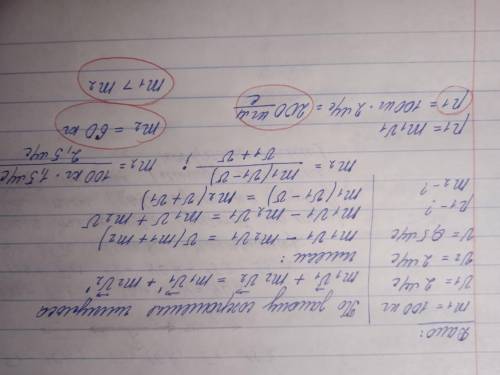 Дано:
m₁ = 100 кг
v₁ = 2 м/с
v₂ = 2 м/с
v = 0,5 м/с
p₁ - ?
m₂ - ?
По закону сохранения импульса
m₁v⃗₁ + m₂v⃗₂ = m₁v⃗₁' + m₂v⃗₂'
m₁v₁ - m₂v₁ = v(m₁+m₂)
m₁v₁ - m₂v₁ = m₁v + m₂v
m₁(v₁-v) = m₂(v+v₁)
m₂ = m₁(v₁-v) / v₁+v ; m₂ = 100 кг · 1,5 м/с / 2,5 м/с
m₂ = 60 кг
m₁ > m₂
p₁ = m₁v₁
p₁ = 100 кг · 2 м/с = 200 кг м/с